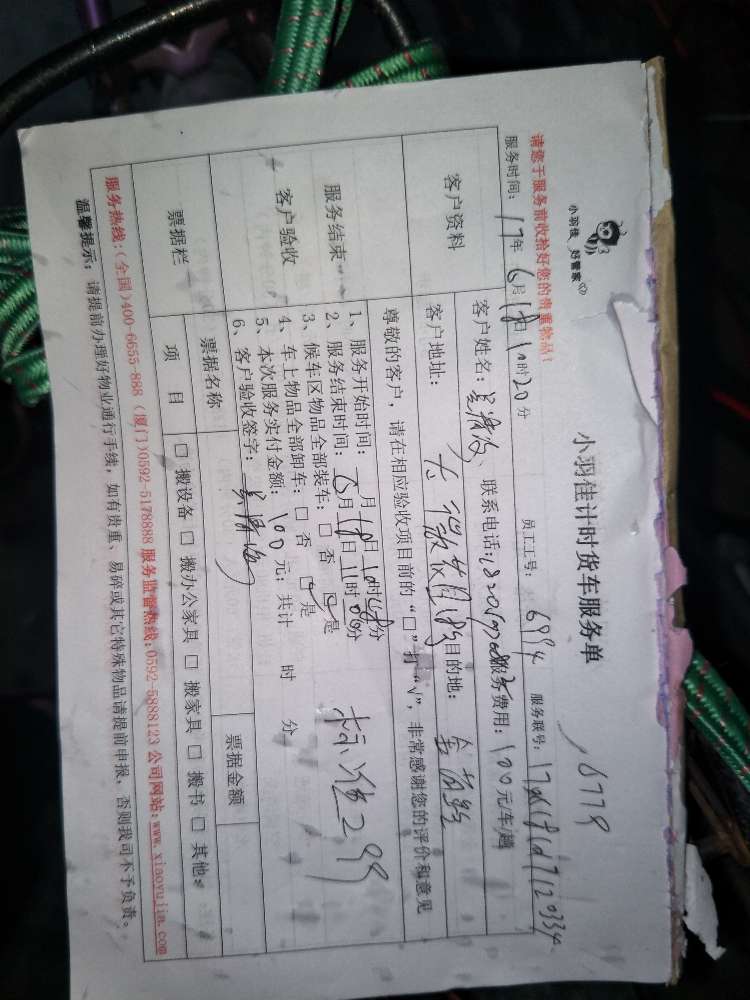 小羽佳 好管家
小羽佳计时货车服务单
6779
请您于服务前收拾好您的贵重物品!
服务时间: 17年 6月 18日 10时20分 员工工号: 6994 服务联号:
客户资料 客户姓名: 联系电话: 服务费用: 100元/车/趟
客户地址: 目的地:
尊敬的客户,请在相应验收项目前的“□”打“√”,非常感谢您的评价和意见
服务结束 客户验收
1、服务开始时间: 6月18日10时 分
2、服务结束时间: 6月18日11时 分
3、候车区物品全部装车: □ 否 ☑ 是
4、车上物品全部卸车: □ 否 ☑ 是
5、本次服务实付金额: 100 元; 共计 时 分
6、客户验收签字:
299
票据栏 票据名称 票据金额
项 目 □ 搬设备 □ 搬办公家具 □ 搬家具 □ 搬书 □ 其他:
服务热线:(全国)400-6655-888 (厦门)0592-5178888 服务监督热线:0592-5888123 公司网站:www.xiaoyujia.com
温馨提示: 请提前办理好物业通行手续; 如有贵重、易碎或其它特殊物品请提前申报, 否则我司不予负责。